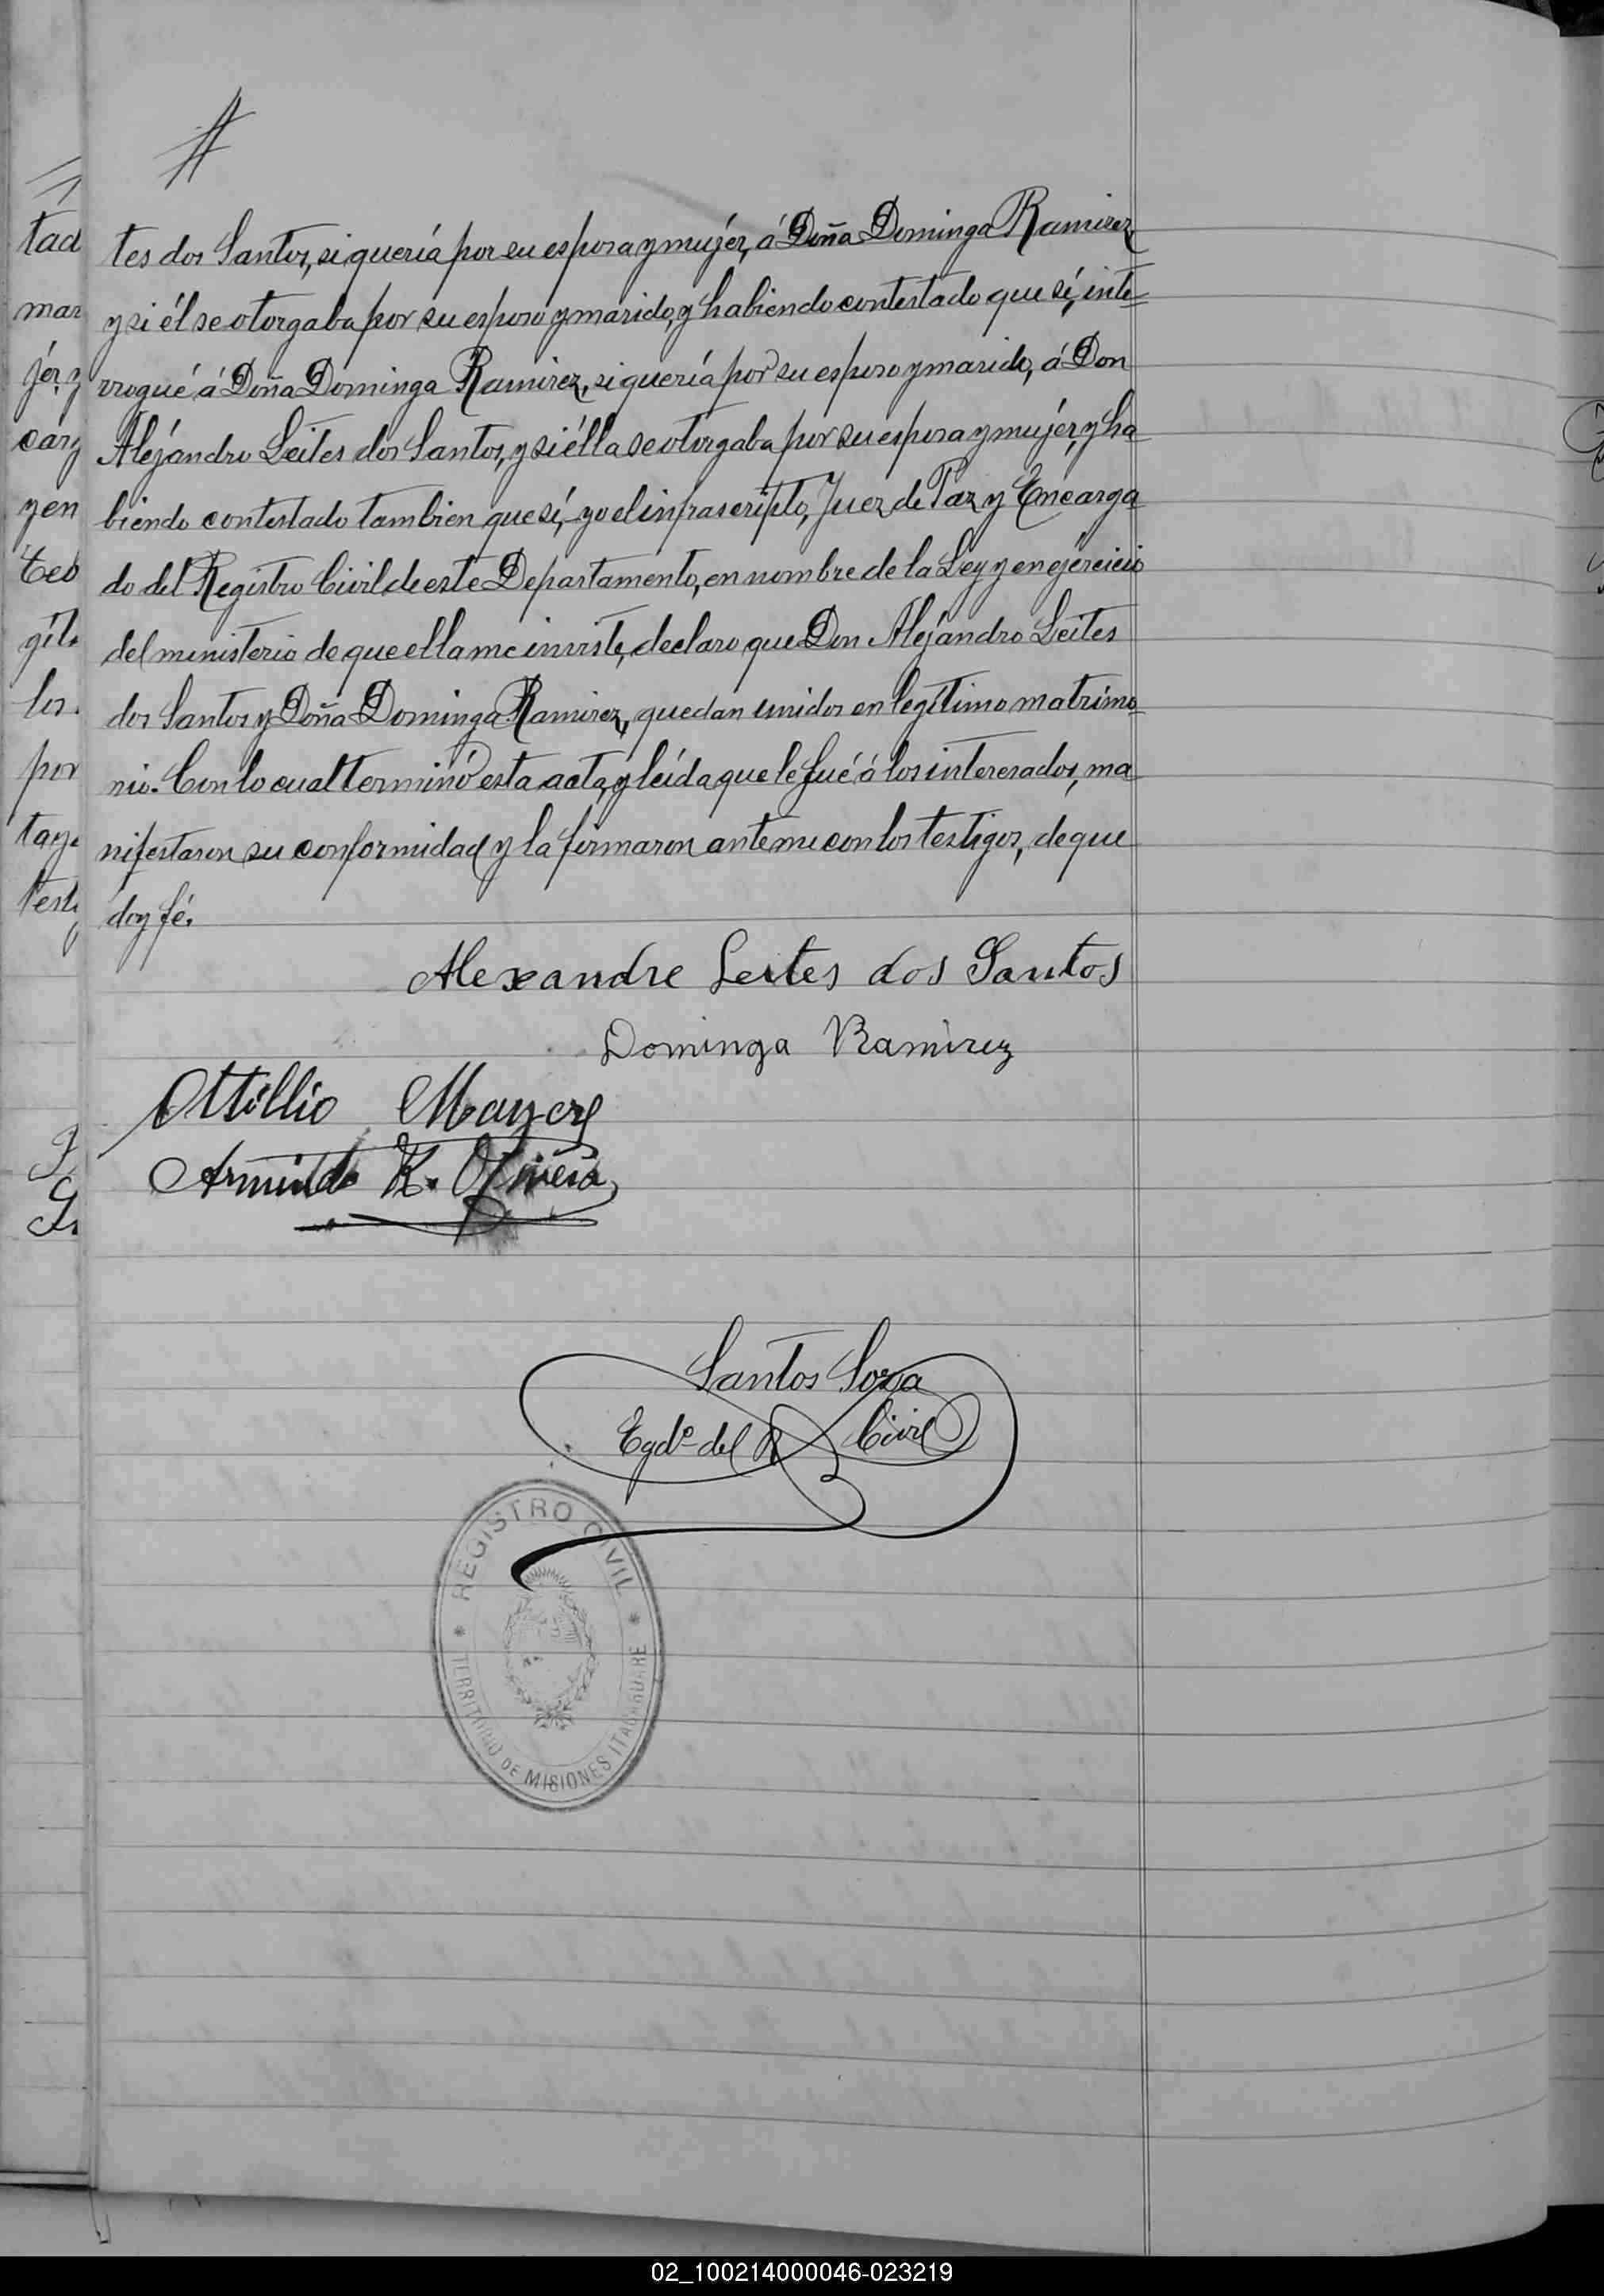 tes dos Santos, si quería por su esposa y mujér, á Doña Dominga Ramirez
y si él se otorgaba por su esposo y marido, y habiendo contestado que sí, inte=
rrogué á Doña Dominga Ramirez, si quería por su esposo y marido, á Don
Alejándro Leites dos Santos, y si élla se otorgaba por su esposa y mujér, y ha
biendo contestado tambien que sí, yo el infrascripto, Juez de Paz y Encarga
do del Registro Civil de este Departamento, en nombre de la Ley y en ejércicio
del ministerio de que ella me inviste, declaro que Don Alejándro Leites
dos Santos y Doña Dominga Ramirez, quedan unidos en legítimo matrimo
nio. Con lo cual terminó esta acta, y leída que le fué á los interesados, ma
nifestaron su conformidad y la firmaron ante mi con los testigos, de que
doy fé.
Alexandre Leites dos Santos
Dominga Ramirez
Attillio
Armindo K.
Santos Sosa
Egdº del R Civil
REGISTRO CIVIL
TERRITORIO DE MISIONES ITACARUARE
tad
mar
jér y
cárg
y en
Teo
gil
los
por
tay
testi
02_100214000046-023219